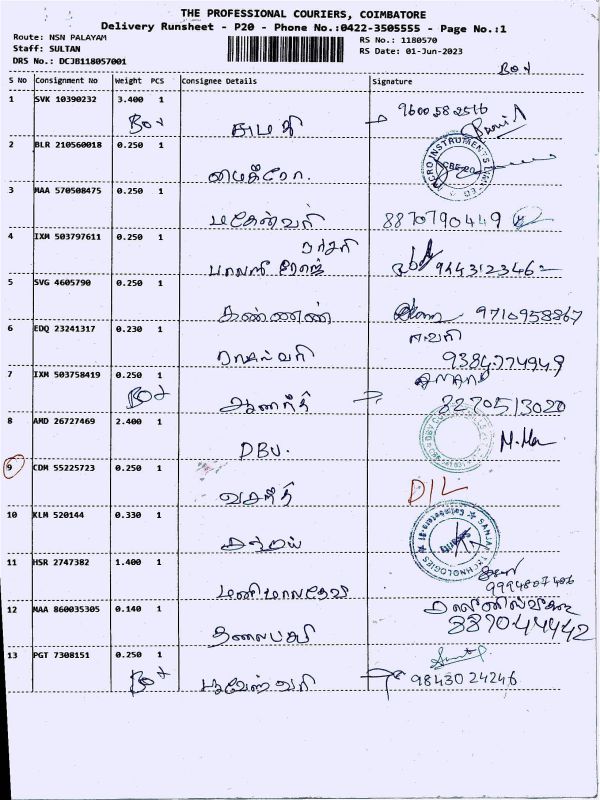 THE PROFESSIONAL COURIERS, COIMBATORE
Delivery Runsheet - P20 - Phone No.:0422-3505555 - Page No.:1
Route: NSN PALAYAM
RS No.: 1180570
Staff: SULTAN
RS Date: 01-Jun-2023
DRS No.: DCJB118057001
Box
S No Consignment No Weight PCS Consignee Details Signature
1 SVK 10390232 3.400 1
Box சுமதி 9600582516
2 BLR 210560018 0.250 1
மைக்ரோ. MICRO INSTRUMENTS CBE-20
3 MAA 570508475 0.250 1
மகேஸ்வரி 8870790449
4 IXM 503797611 0.250 1
5 SVG 4605790 0.250 1
கண்ணன் 9710958867
6 EDQ 23241317 0.230 1
ராஜேஸ்வரி 9384774949
7 IXM 503758419 0.250 1
Box ஆனந்த் 8270513020
8 AMD 26727469 2.400 1
DBV.
9 CDM 55225723 0.250 1
வசந்த் D/L
10 KLM 520144 0.330 1
SANJAI TECHNOLOGIES
11 HSR 2747382 1.400 1
மணிமாலதேவி
12 MAA 860035305 0.140 1
8870444442
13 PGT 7308151 0.250 1
Box புவனேஸ்வரி 9843024246